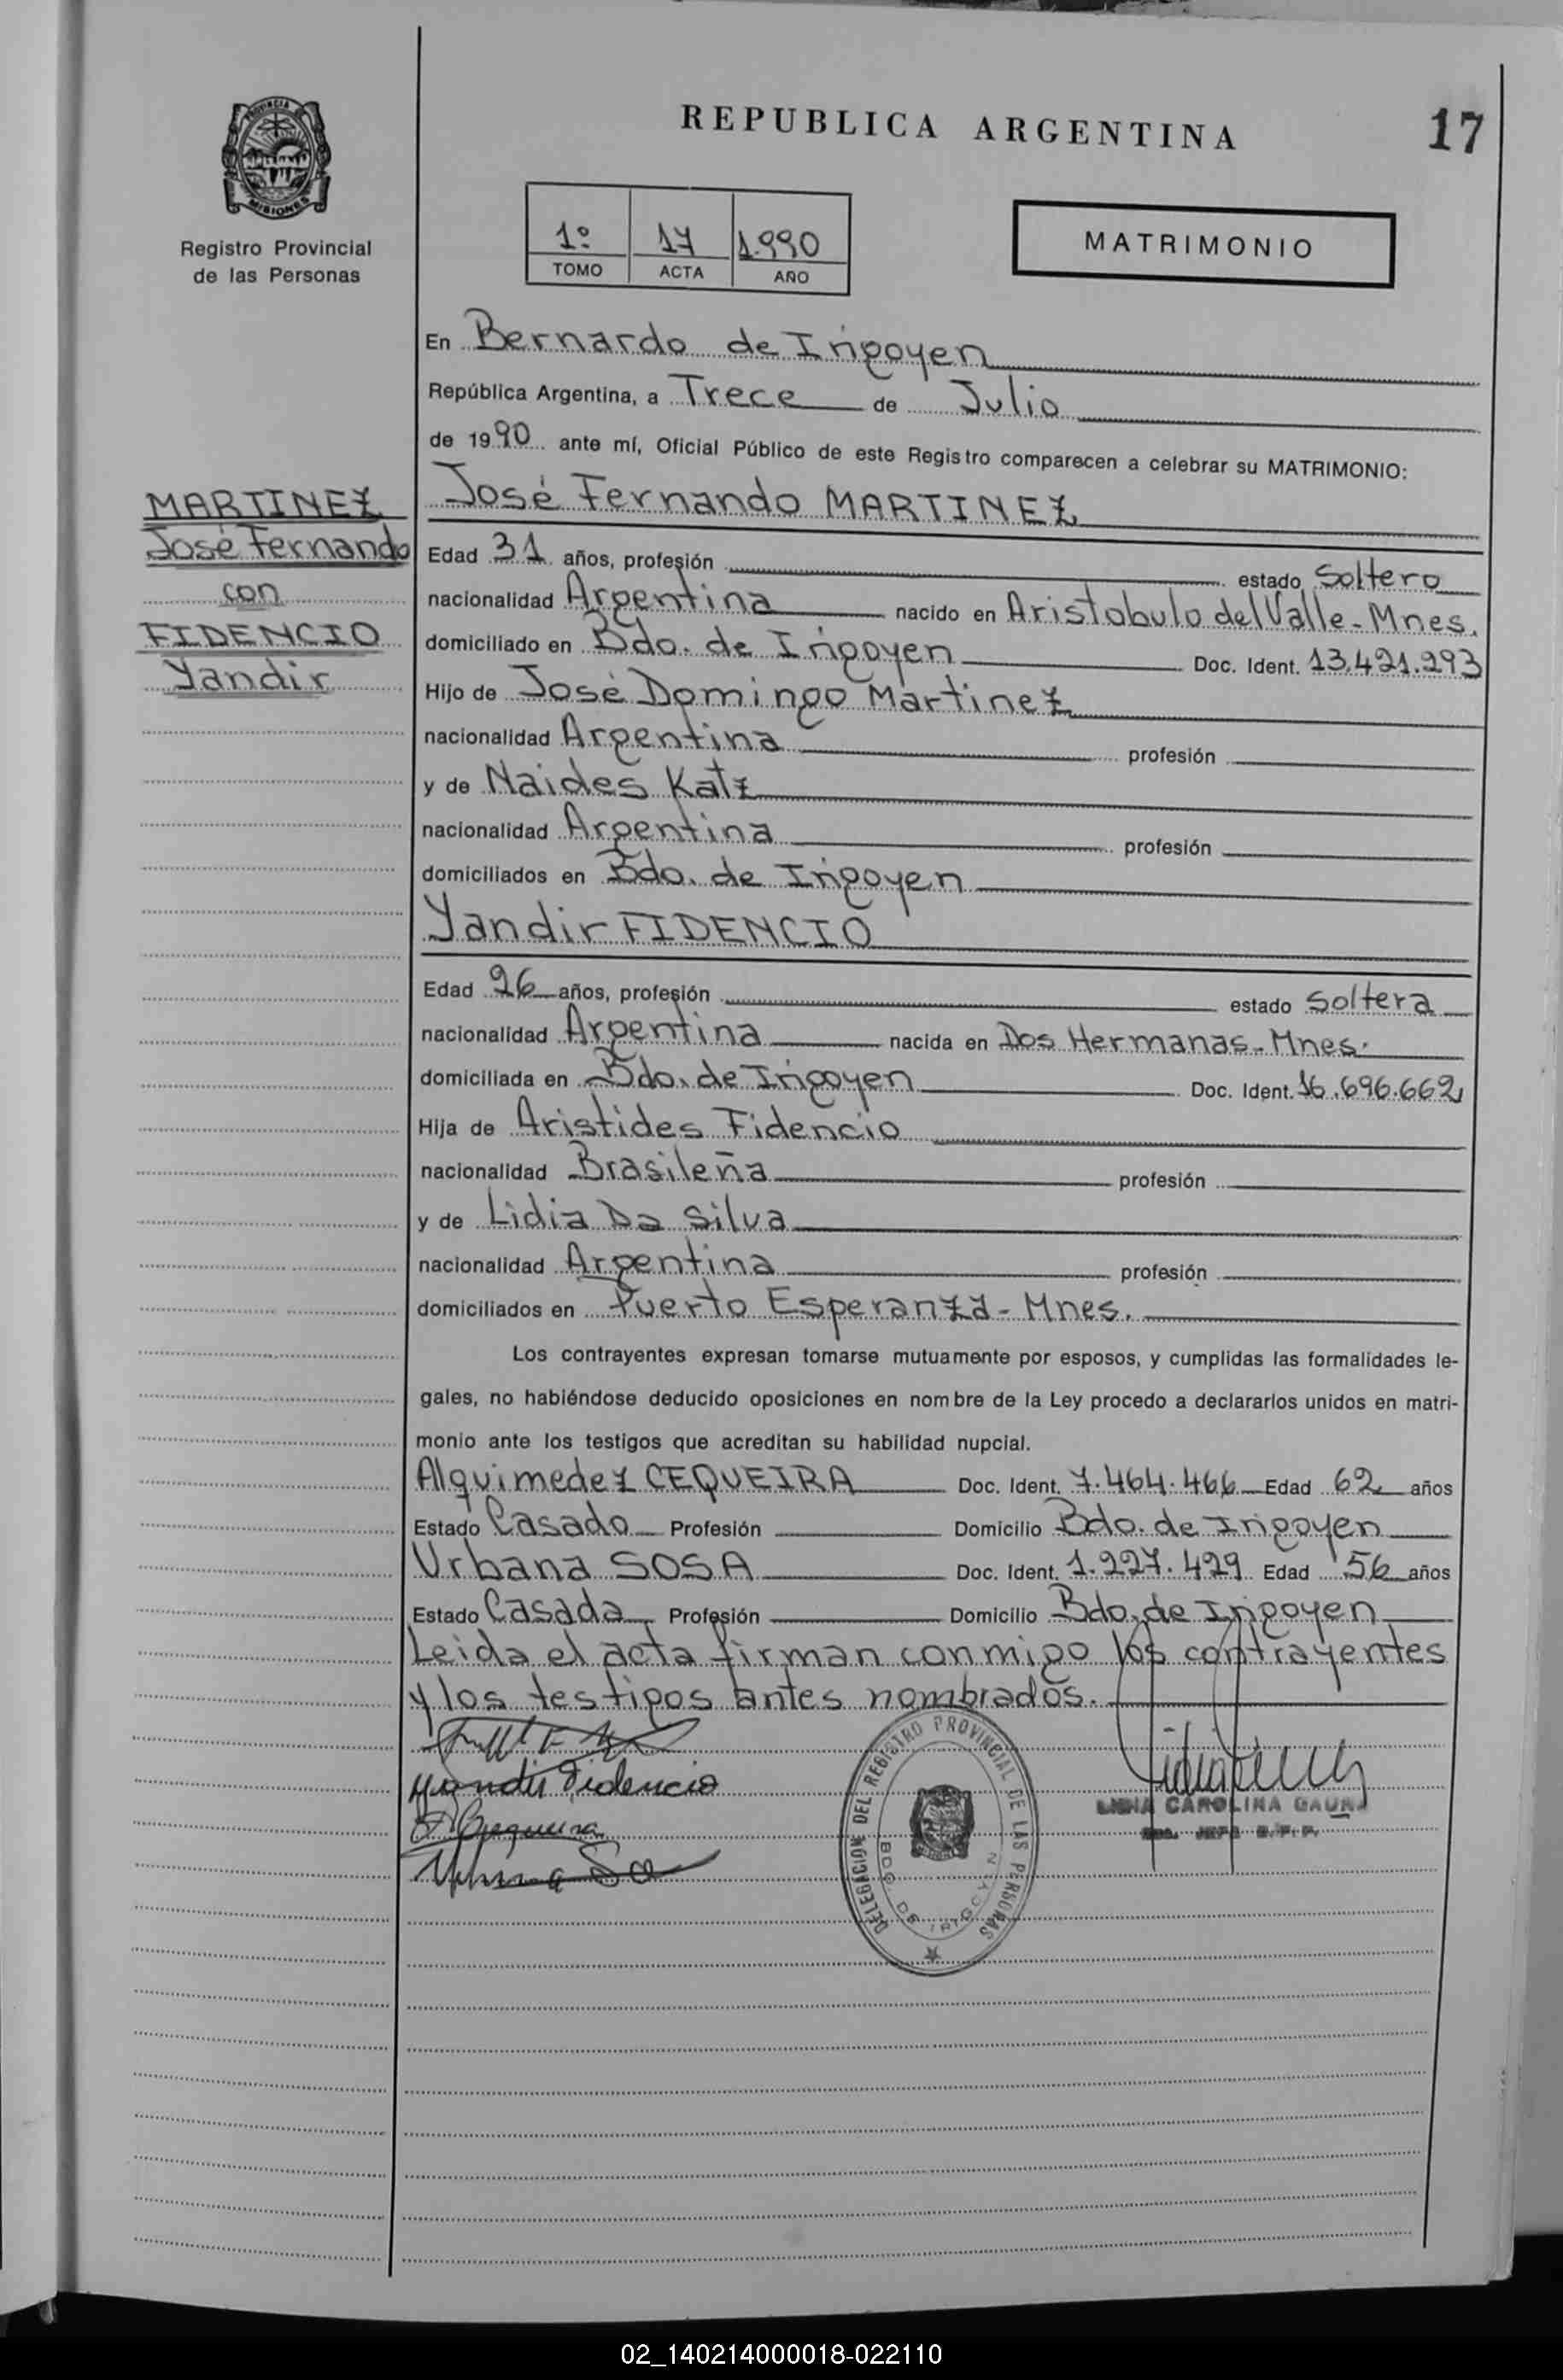 REPUBLICA ARGENTINA
17
PROVINCIA
MISIONES
Registro Provincial
de las Personas
1º 17 1.990
TOMO ACTA AÑO
MATRIMONIO
En Bernardo de Irigoyen
República Argentina, a Trece de Julio
de 1990 ante mí, Oficial Público de este Registro comparecen a celebrar su MATRIMONIO:
MARTINEZ
José Fernando
con
FIDENCIO
Yandir
José Fernando MARTINEZ
Edad 31 años, profesión estado Soltero
nacionalidad Argentina nacido en Aristobulo del Valle - Mnes.
domiciliado en Bdo. de Irigoyen Doc. Ident. 13.421.293
Hijo de José Domingo Martinez
nacionalidad Argentina profesión
y de Naides Katz
nacionalidad Argentina profesión
domiciliados en Bdo. de Irigoyen
Yandir FIDENCIO
Edad 26 años, profesión estado Soltera
nacionalidad Argentina nacida en Dos Hermanas - Mnes.
domiciliada en Bdo. de Irigoyen Doc. Ident. 16.696.662
Hija de Aristides Fidencio
nacionalidad Brasileña profesión
y de Lidia Da Silva
nacionalidad Argentina profesión
domiciliados en Puerto Esperanza - Mnes.
Los contrayentes expresan tomarse mutuamente por esposos, y cumplidas las formalidades le-
gales, no habiéndose deducido oposiciones en nombre de la Ley procedo a declararlos unidos en matri-
monio ante los testigos que acreditan su habilidad nupcial.
Alquimedez CEQUEIRA Doc. Ident. 7.464.466 Edad 62 años
Estado Casado Profesión Domicilio Bdo. de Irigoyen
Urbana SOSA Doc. Ident. 1.227.429 Edad 56 años
Estado Casada Profesión Domicilio Bdo. de Irigoyen
Leida el acta firman conmigo los contrayentes
y los testigos antes nombrados.
Yandir Fidencio
DELEGACION DEL REGISTRO PROVINCIAL DE LAS PERSONAS
BDO. DE IRIGOYEN
CAROLINA GAUNA
02_140214000018-022110